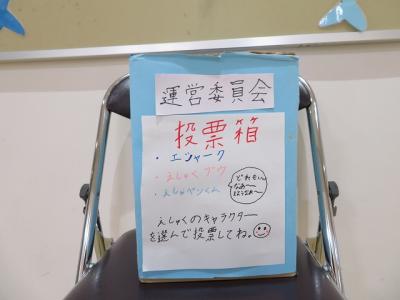 運営委員会
投票箱
・エシャーク
・えしゃくブウ
・えしゃペンくん
どれもいい
なあ〜
えしゃくのキャラクター
を選んで投票してね。